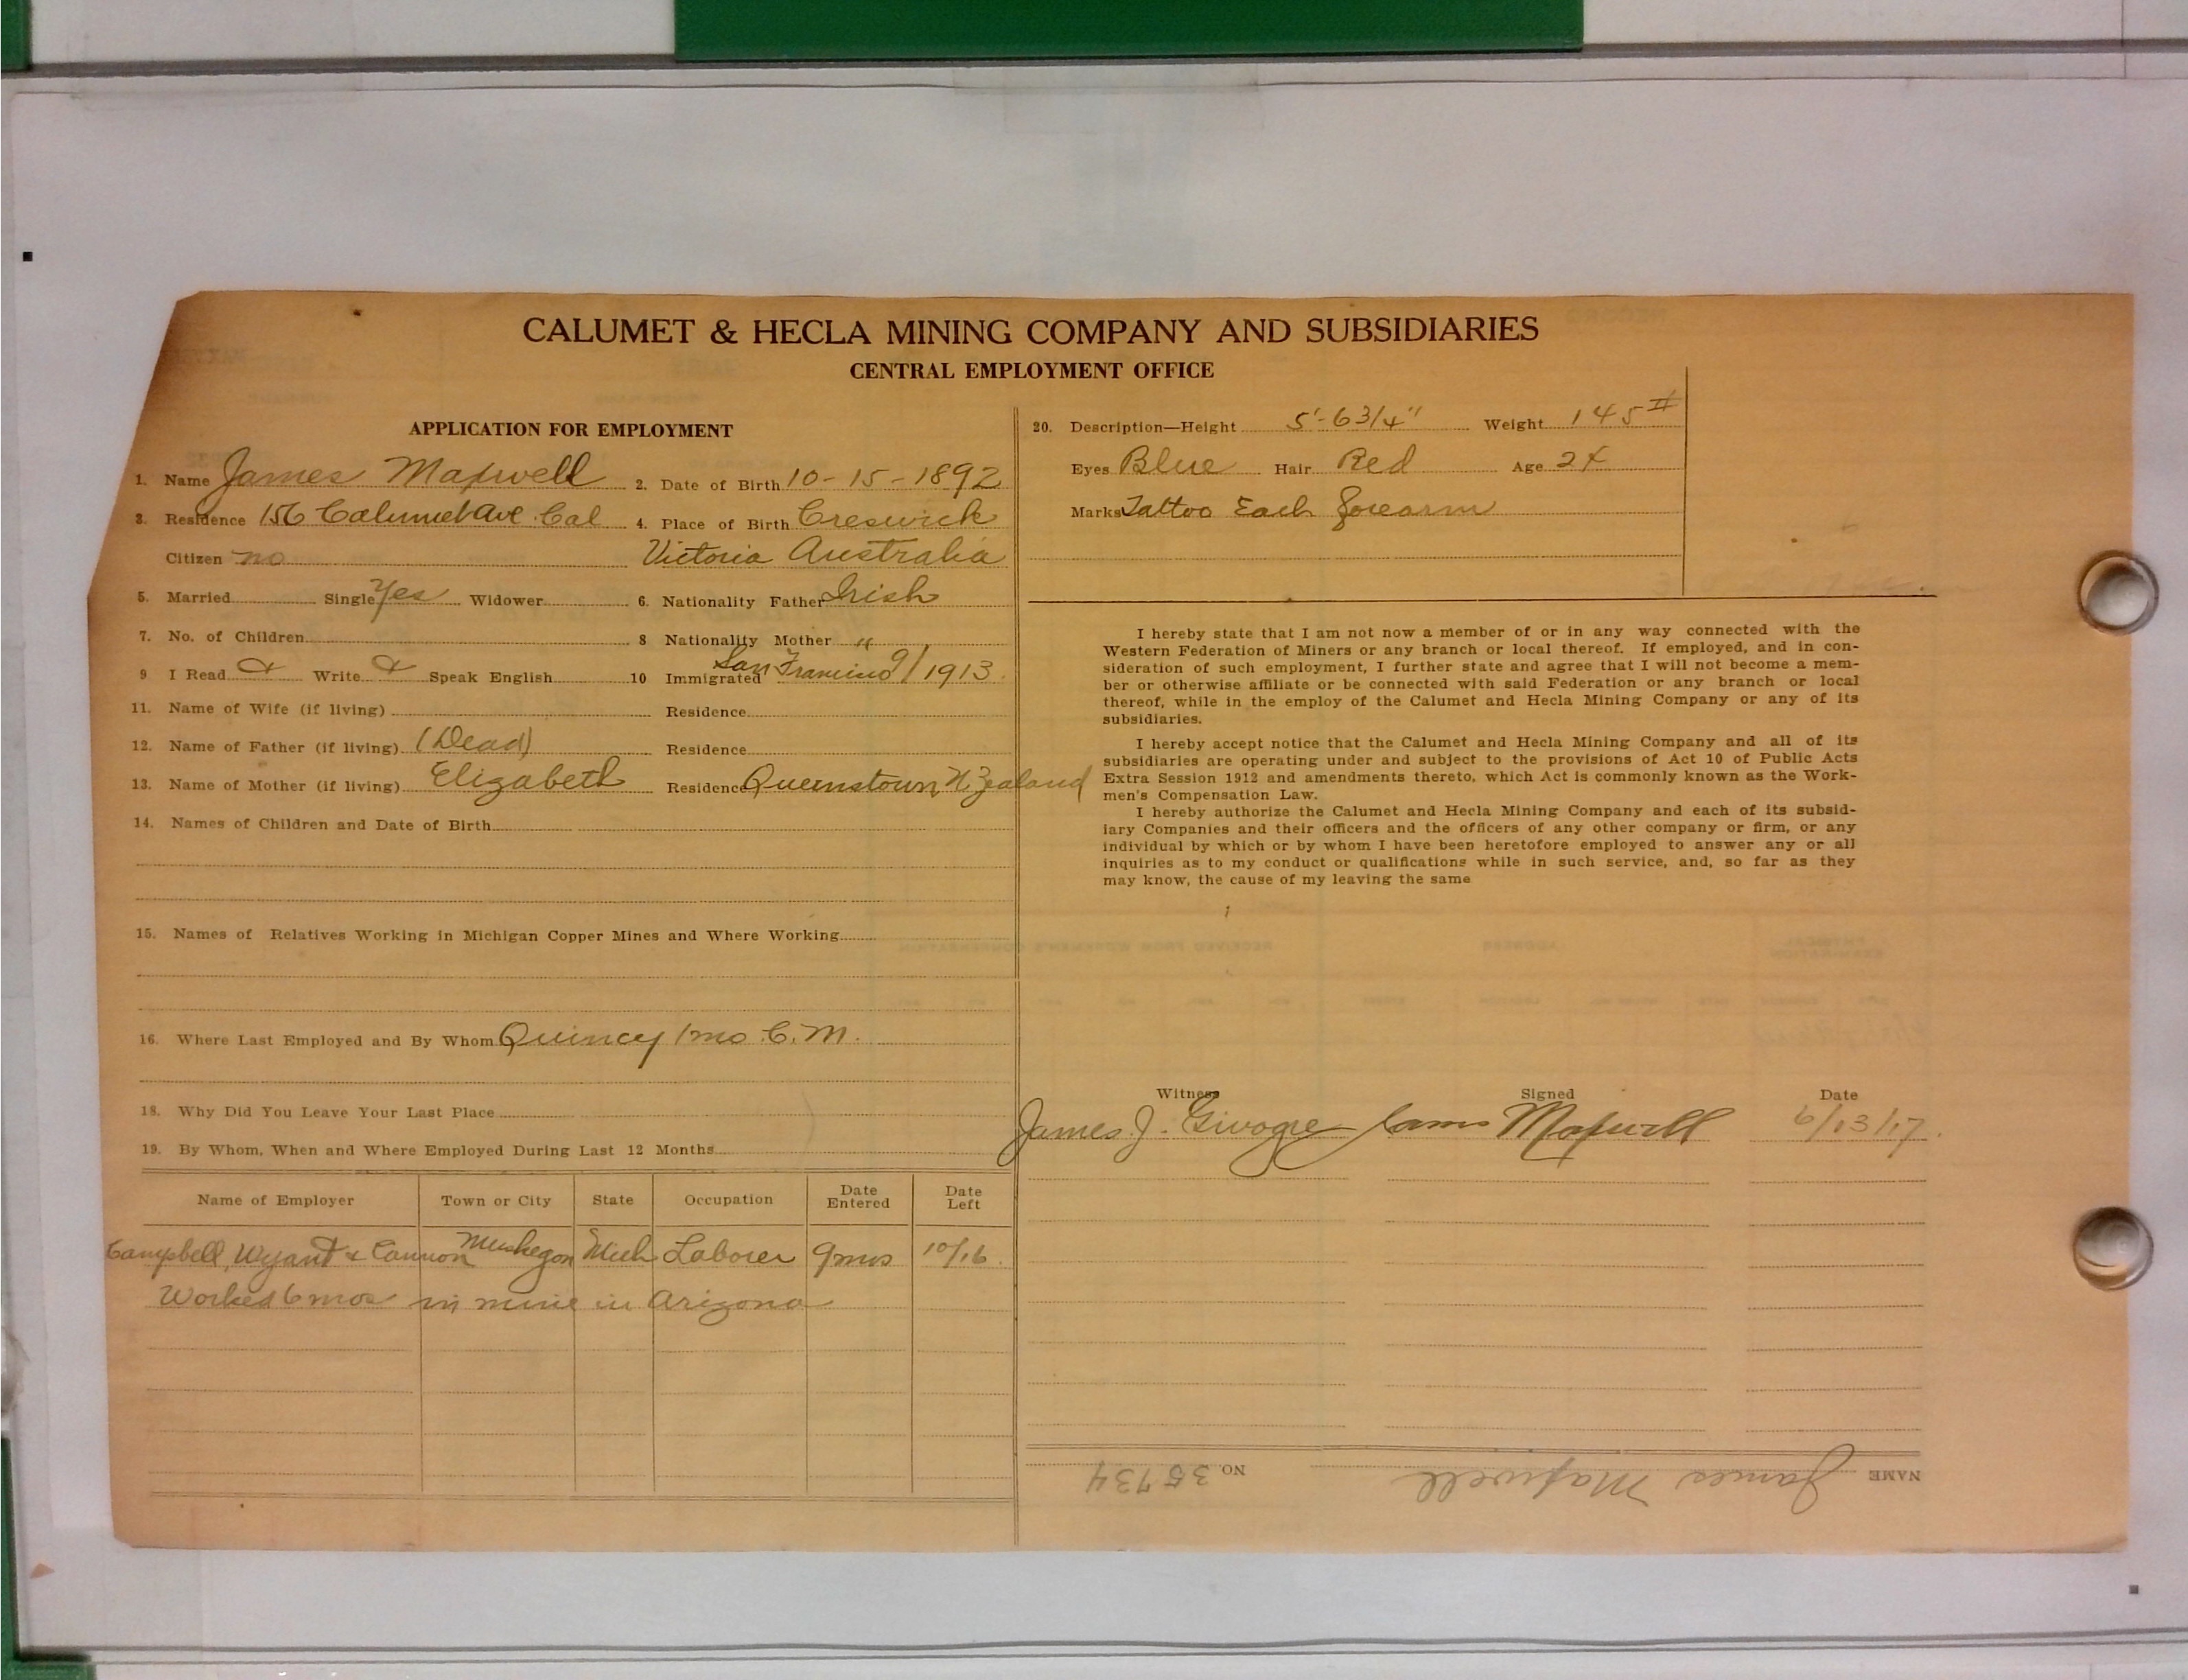 CALUMET & HECLA MINING COMPANY AND SUBSIDIARIES
CENTRAL EMPLOYMENT OFFICE
APPLICATION FOR EMPLOYMENT
1. Name James Maxwell 2. Date of Birth 10-15-1892
3. Residence 156 Calumet Ave Cal 4. Place of Birth Creswick
Citizen no Victoria Australia
5. Married Single Yes Widower 6. Nationality Father Irish
7. No. of Children 8 Nationality Mother "
9 I Read Write Speak English 10 Immigrated San Francisco 9/1913
11. Name of Wife (if living) Residence
12. Name of Father (if living) (Dead) Residence
13. Name of Mother (if living) Elizabeth Residence Queenstown N. Zealand
14. Names of Children and Date of Birth
15. Names of Relatives Working in Michigan Copper Mines and Where Working
16. Where Last Employed and By Whom Quincy 1 mo C.M.
18. Why Did You Leave Your Last Place
19. By Whom, When and Where Employed During Last 12 Months
Name of Employer Town or City State Occupation Date Entered Date Left
Campbell, Wyant & Cannon Muskegon Mich Laborer 9 mos 10/16
Worked 6 mos in mine in Arizona
20. Description—Height 5'-6 3/4" Weight 145 #
Eyes Blue Hair Red Age 24
Marks Tattoo Each forearm
I hereby state that I am not now a member of or in any way connected with the
Western Federation of Miners or any branch or local thereof. If employed, and in con-
sideration of such employment, I further state and agree that I will not become a mem-
ber or otherwise affiliate or be connected with said Federation or any branch or local
thereof, while in the employ of the Calumet and Hecla Mining Company or any of its
subsidiaries.
I hereby accept notice that the Calumet and Hecla Mining Company and all of its
subsidiaries are operating under and subject to the provisions of Act 10 of Public Acts
Extra Session 1912 and amendments thereto, which Act is commonly known as the Work-
men's Compensation Law.
I hereby authorize the Calumet and Hecla Mining Company and each of its subsid-
iary Companies and their officers and the officers of any other company or firm, or any
individual by which or by whom I have been heretofore employed to answer any or all
inquiries as to my conduct or qualifications while in such service, and, so far as they
may know, the cause of my leaving the same
Witness Signed Date
James J. James Maxwell 6/13/17
NAME James Maxwell NO. 35734